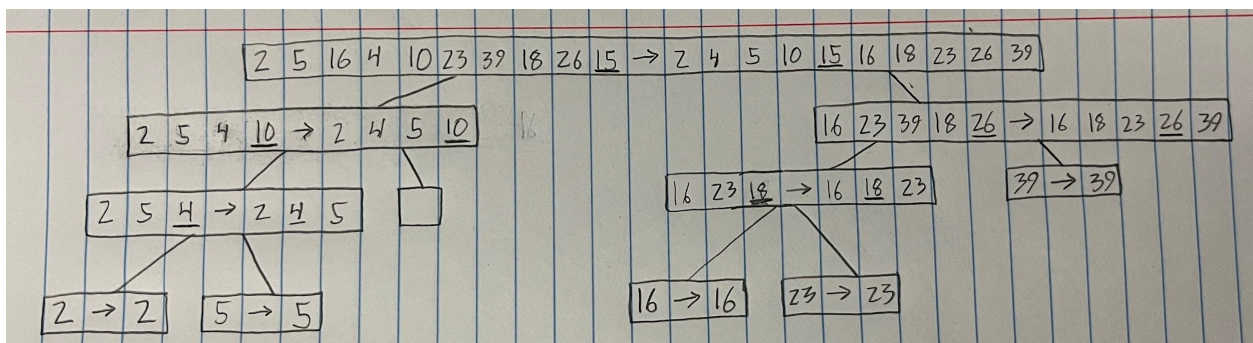 2 5 16 4 10 23 39 18 26 15 → 2 4 5 10 15 16 18 23 26 39
2 5 4 10 → 2 4 5 10
16
16 23 39 18 26 → 16 18 23 26 39
2 5 4 → 2 4 5
16 23 18 → 16 18 23
39 → 39
2 → 2
5 → 5
16 → 16
23 → 23